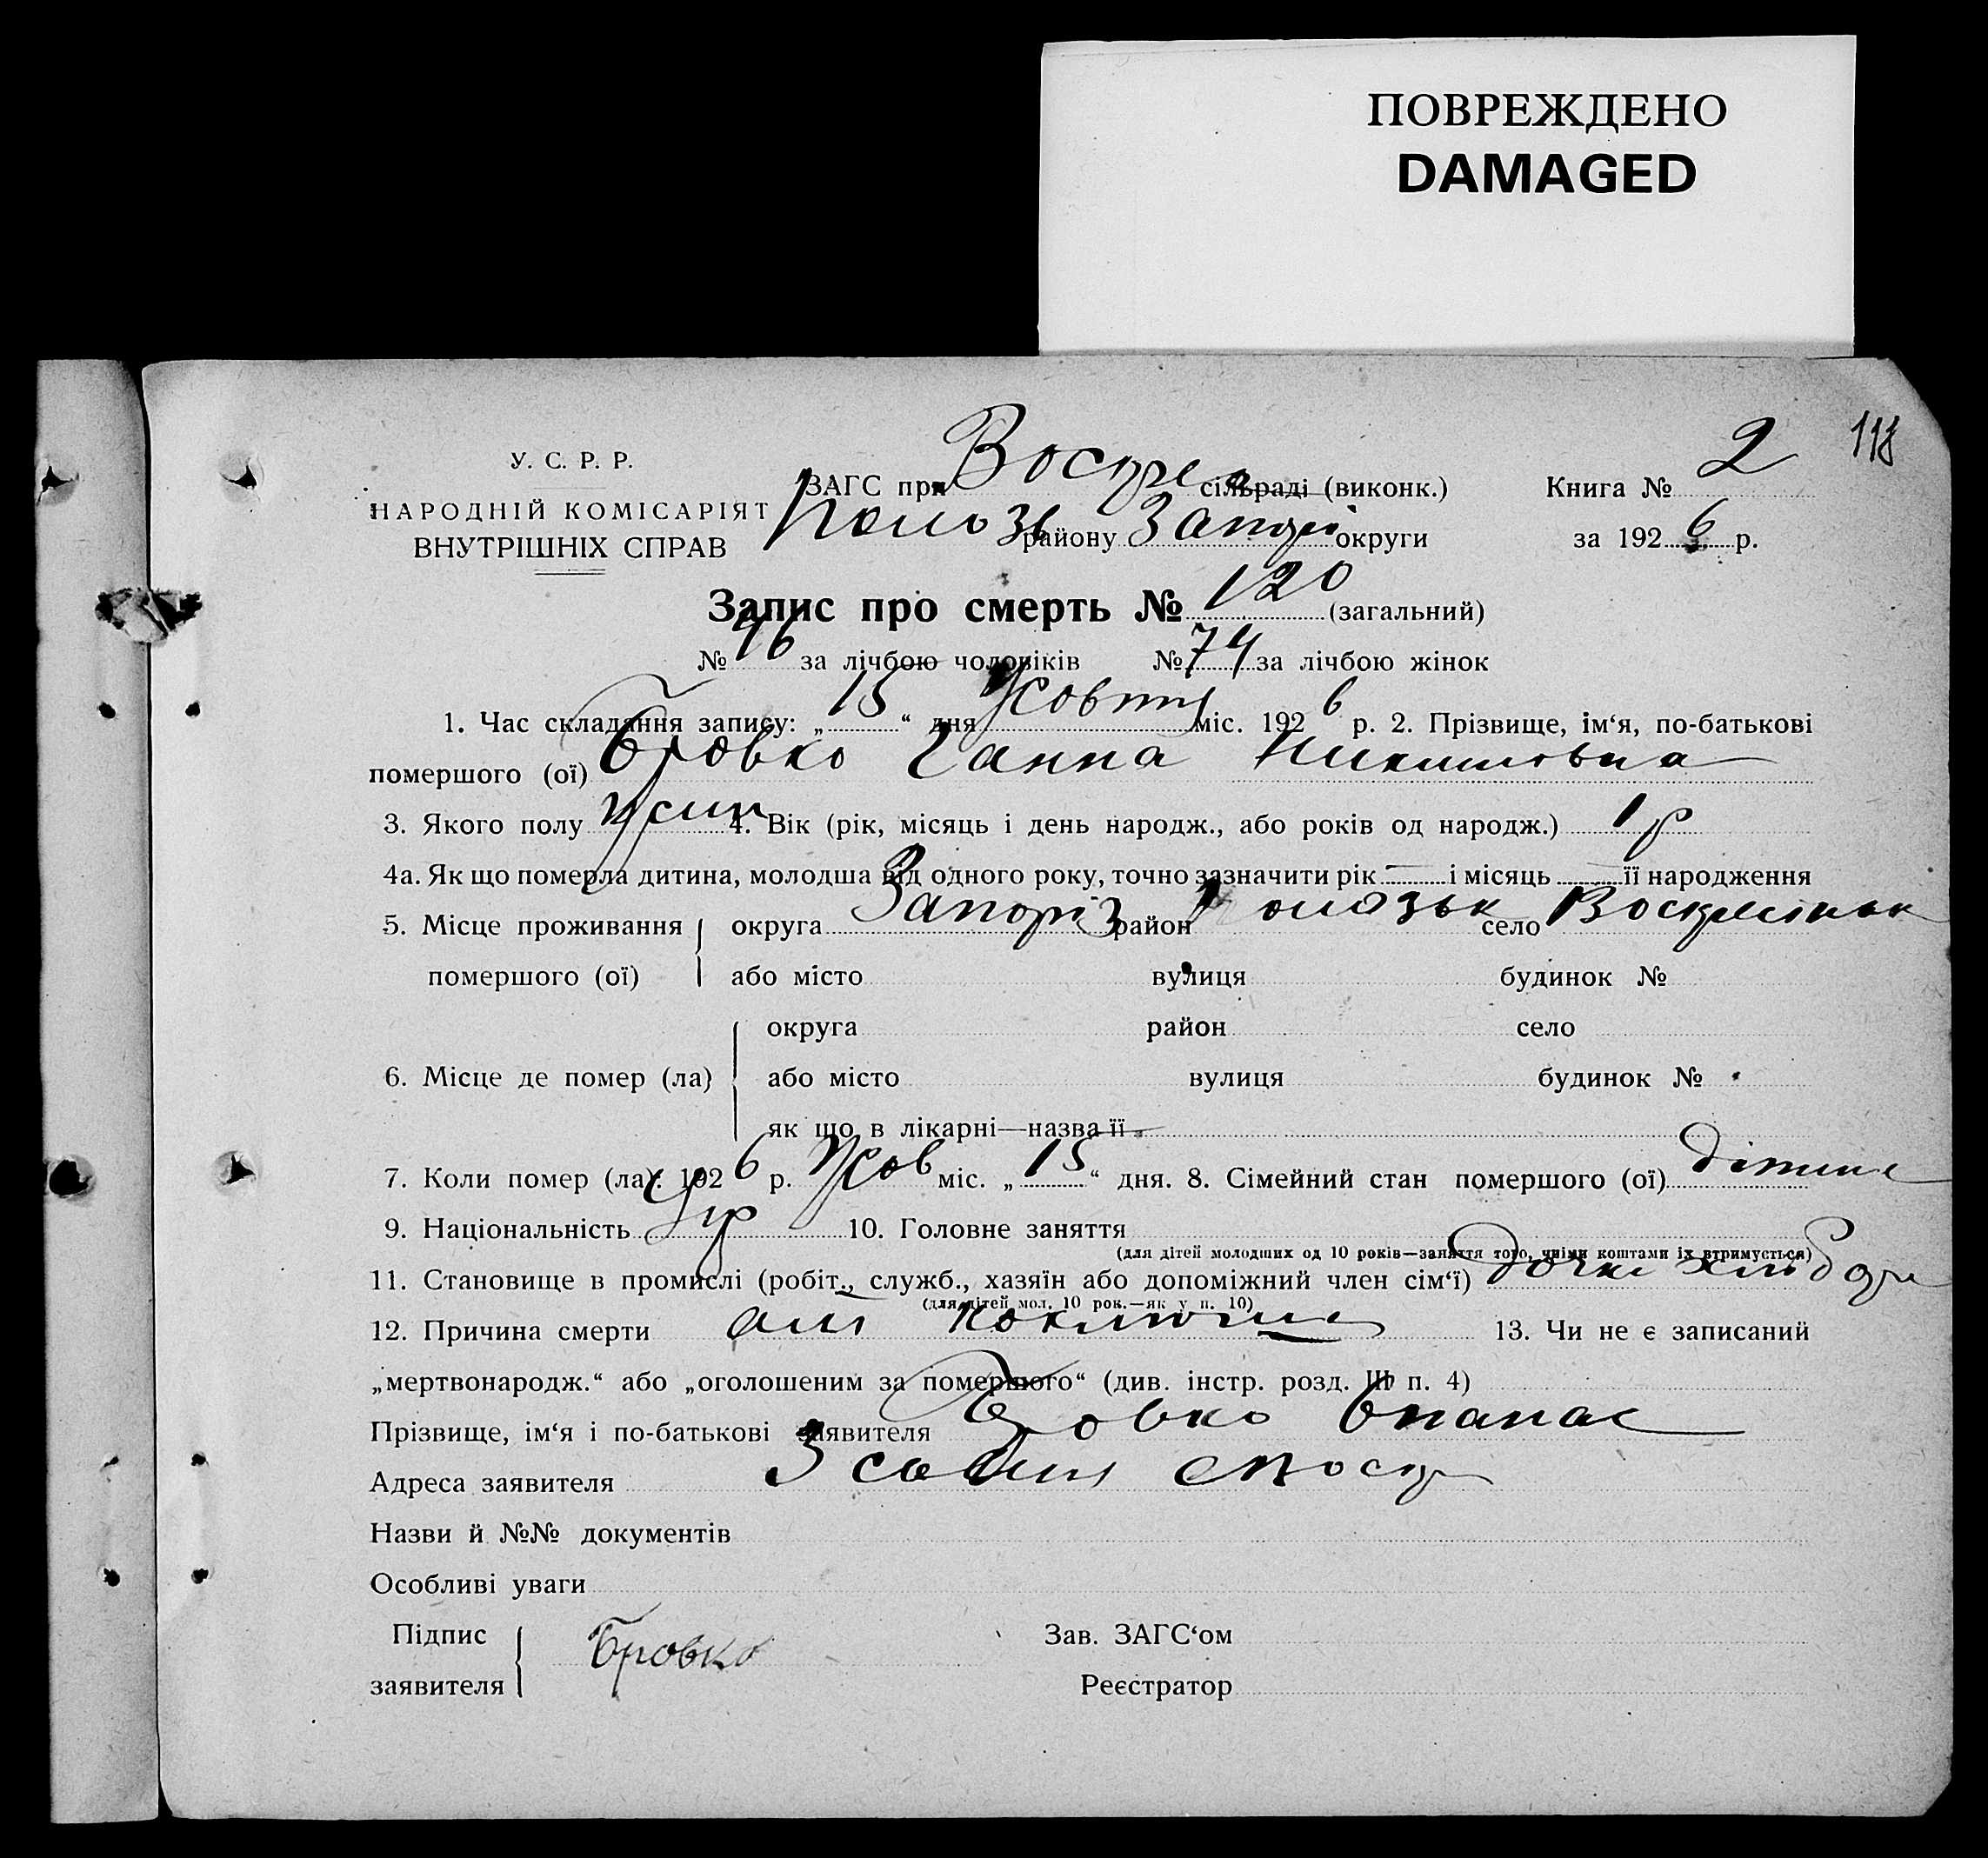 ПОВРЕЖДЕНО
DAMAGED
118
У. С. Р. Р.
НАРОДНІЙ КОМІСАРІЯТ
ВНУТРІШНІХ СПРАВ
ЗАГС при Воскре сільраді (виконк.) Книга № 2
району Запорі округи за 1926 р.
Запис про смерть № 120 (загальний)
№ 46 за лічбою чоловіків № 74 за лічбою жінок
1. Час складання запису: „15“ дня Жовтня міс. 1926 р. 2. Прізвище, ім‘я, по-батькові
помершого (ої) Бровко Ганна
3. Якого полу жин 4. Вік (рік, місяць і день народж., або років од народж.) 1 р
4а. Як що померла дитина, молодша від одного року, точно зазначити рік — і місяць — її народження
5. Місце проживання помершого (ої) округа Запоріз район село
або місто вулиця будинок №
6. Місце де помер (ла) округа район село
або місто вулиця будинок №
як що в лікарні—назва її
7. Коли помер (ла). 1926 р. Жов міс. „15“ дня. 8. Сімейний стан помершого (ої) дитина
9. Національність Укр 10. Головне заняття
(для дітей молодших од 10 років—заняття того, чиїми коштами їх втримується)
11. Становище в промислі (робіт., служб., хазяїн або допоміжний член сім‘ї) дочка
(для дітей мол. 10 рок.—як у п. 10)
12. Причина смерти 13. Чи не є записаний
„мертвонародж.“ або „оголошеним за помершого“ (див. інстр. розд. III п. 4)
Прізвище, ім‘я і по-батькові заявителя Бровко Опанас
Адреса заявителя
Назви й №№ документів
Особливі уваги
Підпис заявителя Бровко Зав. ЗАГС‘ом
Реєстратор